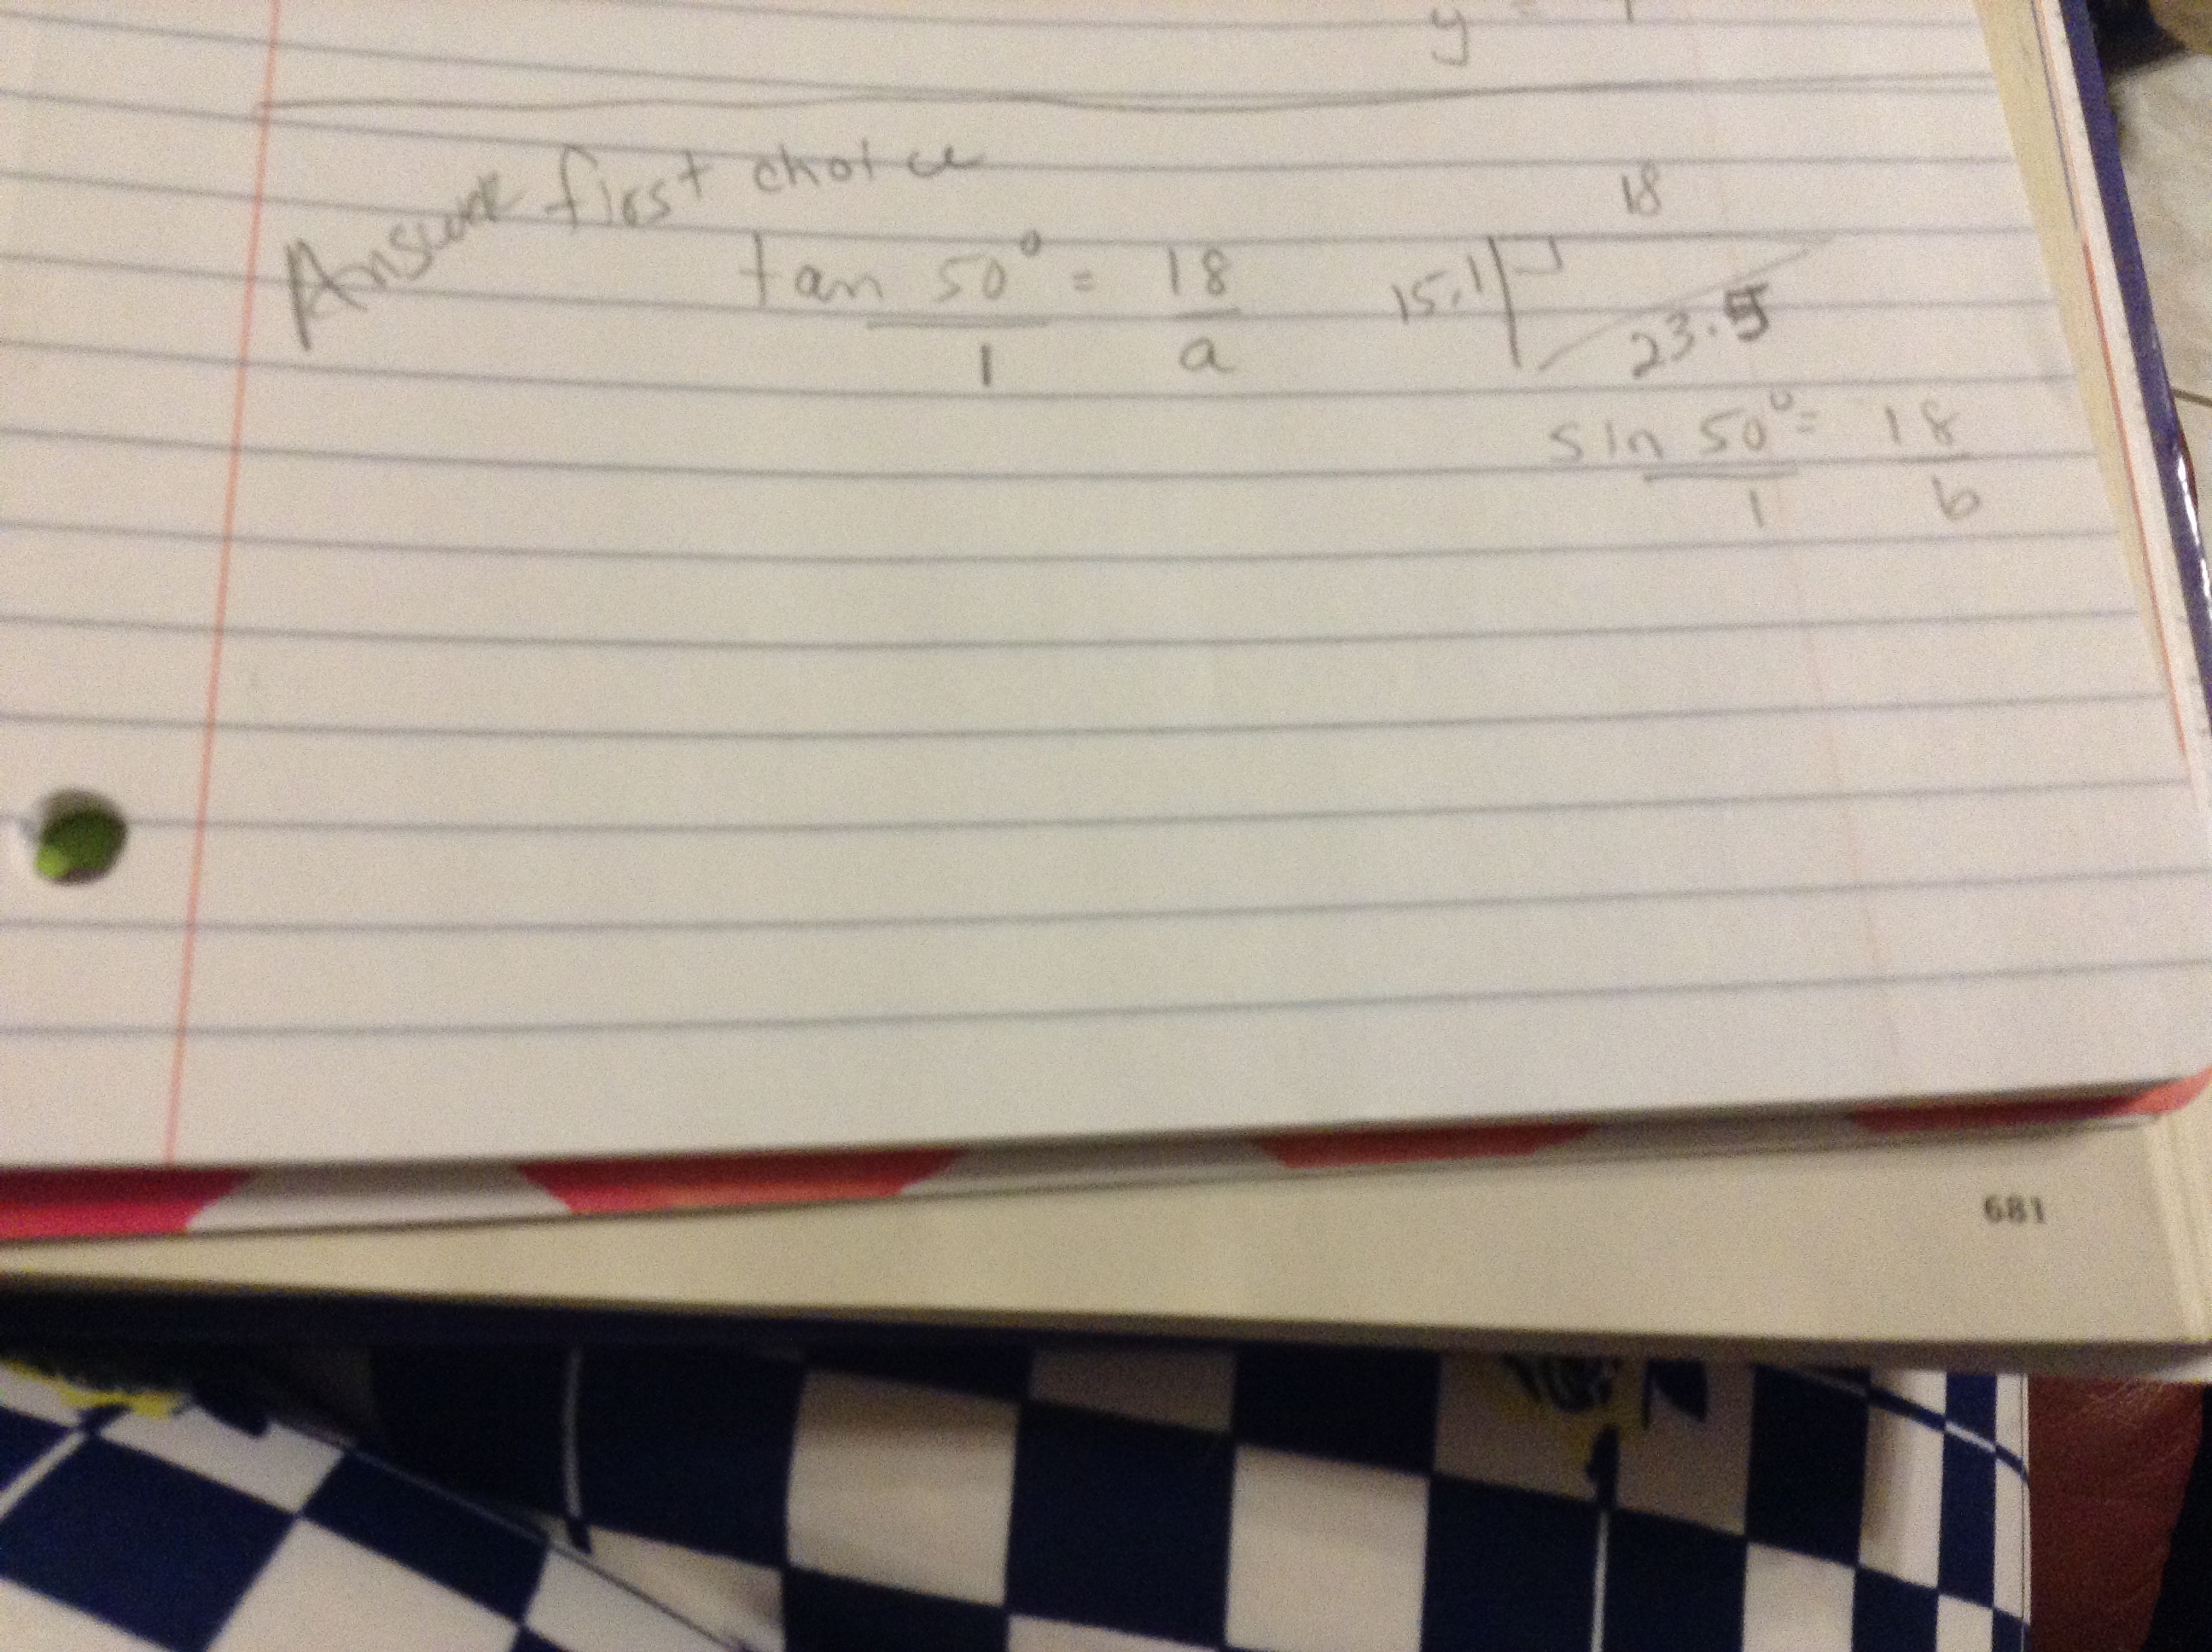 y =
Answer first choice
tan 50° = 18
1 a
18
15.1
23.5
sin 50° = 18
1 b
681